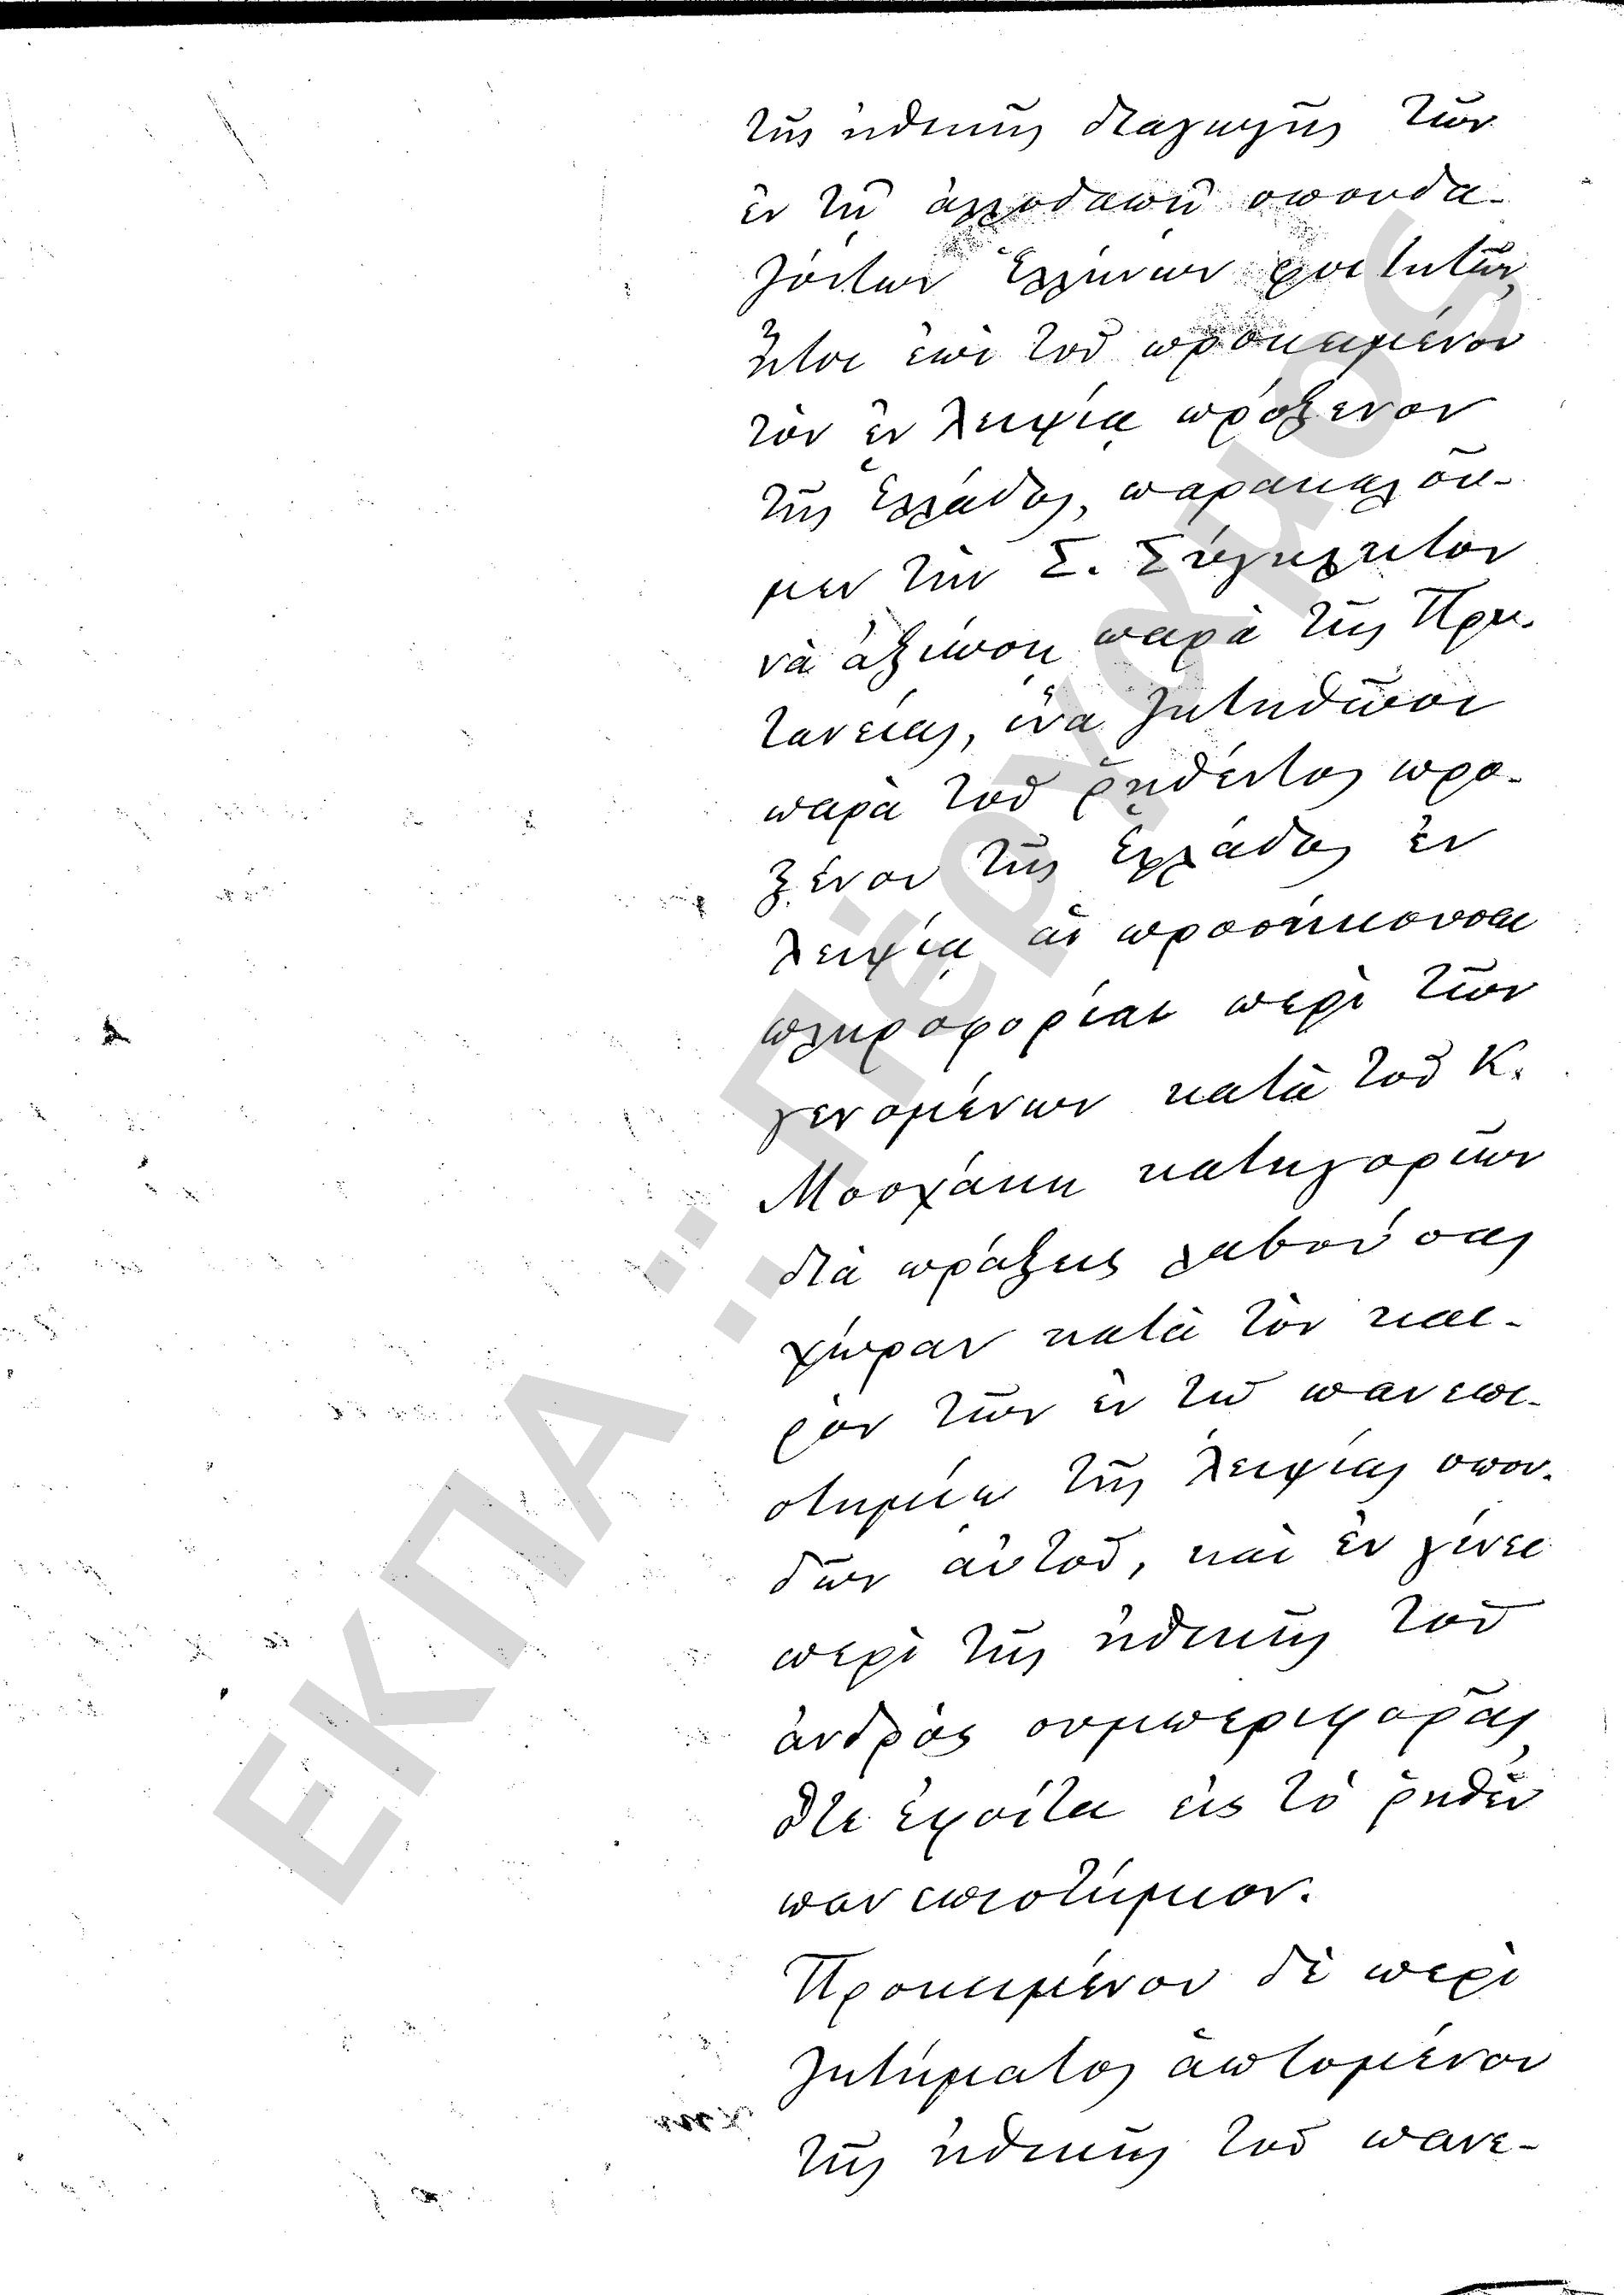 τῆς ἠθικῆς διαγωγῆς τῶν
ἐν τῇ ἀλλοδαπῇ σπουδα-
ζόντων Ἑλλήνων φοιτητῶν,
ἤτοι ἐπὶ τοῦ προκειμένου
τὸν ἐν Λειψίᾳ πρόξενον
τῆς Ἑλλάδος, παρακαλοῦ-
μεν τὴν Σ. Σύγκλητον
νὰ ἀξιώσῃ παρὰ τῆς Πρυ-
τανείας, ἵνα ζητηθῶσι
παρὰ τοῦ ῥηθέντος προ-
ξένου τῆς Ἑλλάδος ἐν
Λειψίᾳ αἱ προσήκουσαι
πληροφορίαι περὶ τῶν
γενομένων κατὰ τοῦ Κ.
Μοσχάκη κατηγοριῶν
διὰ πράξεις λαβούσας
χώραν κατὰ τὸν και-
ρὸν τῶν ἐν τῷ πανεπι-
στημίῳ τῆς Λειψίας σπου-
δῶν αὐτοῦ, καὶ ἐν γένει
περὶ τῆς ἠθικῆς τοῦ
ἀνδρὸς συμπεριφορᾶς,
ὅτε ἐφοίτα εἰς τὸ ῥηθὲν
πανεπιστήμιον.
Προκειμένου δὲ περὶ
ζητήματος ἁπτομένου
τῆς ἠθικῆς τοῦ πανε-
ΕΚΠΑ...Πέργαμος